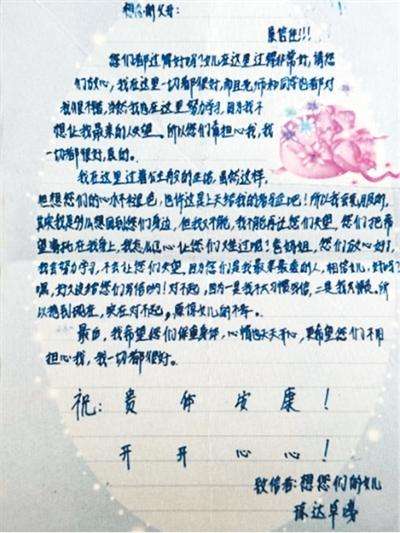 想念的父母：
展信佳!!!
您们都过得好吗?女儿在这里过得非常好,请您
们放心,我在这里一切都很好,而且老师和同学也都对
我很不错,当然我也在这里努力学习,因为我不
想让我最亲的人失望。所以您们别担心我,我
一切都很好,真的。
我在这里过着衣食的生活,虽然这样,
但想您们的心永不褪色,也许这是上天给我的考验吧!所以我会克服的,
其实我是多么想回到您们身边,但我不能,我不能再让您们失望。您们把希
望寄托在我身上,我怎么忍心让您们失望呢!爸妈姐,您们放心好了,
我会努力学习,不会让您们失望,因为您们是我最亲最爱的人,相信女儿,好吗?
嘿,好久没给您们写信哟!对不起,因为一是我不太习惯写信,二是我太懒。所
以拖到现在,实在对不起,原谅女儿的不孝。
最后,我希望您们保重身体,心情也天天开心,更希望您们不用
担心我,我一切都很好。
祝: 贵 体 安 康 !
开 开 心 心 !
致信者:想您们的女儿